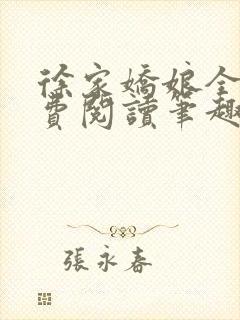 徐家嬌娘全
費閱讀筆趣
張永春